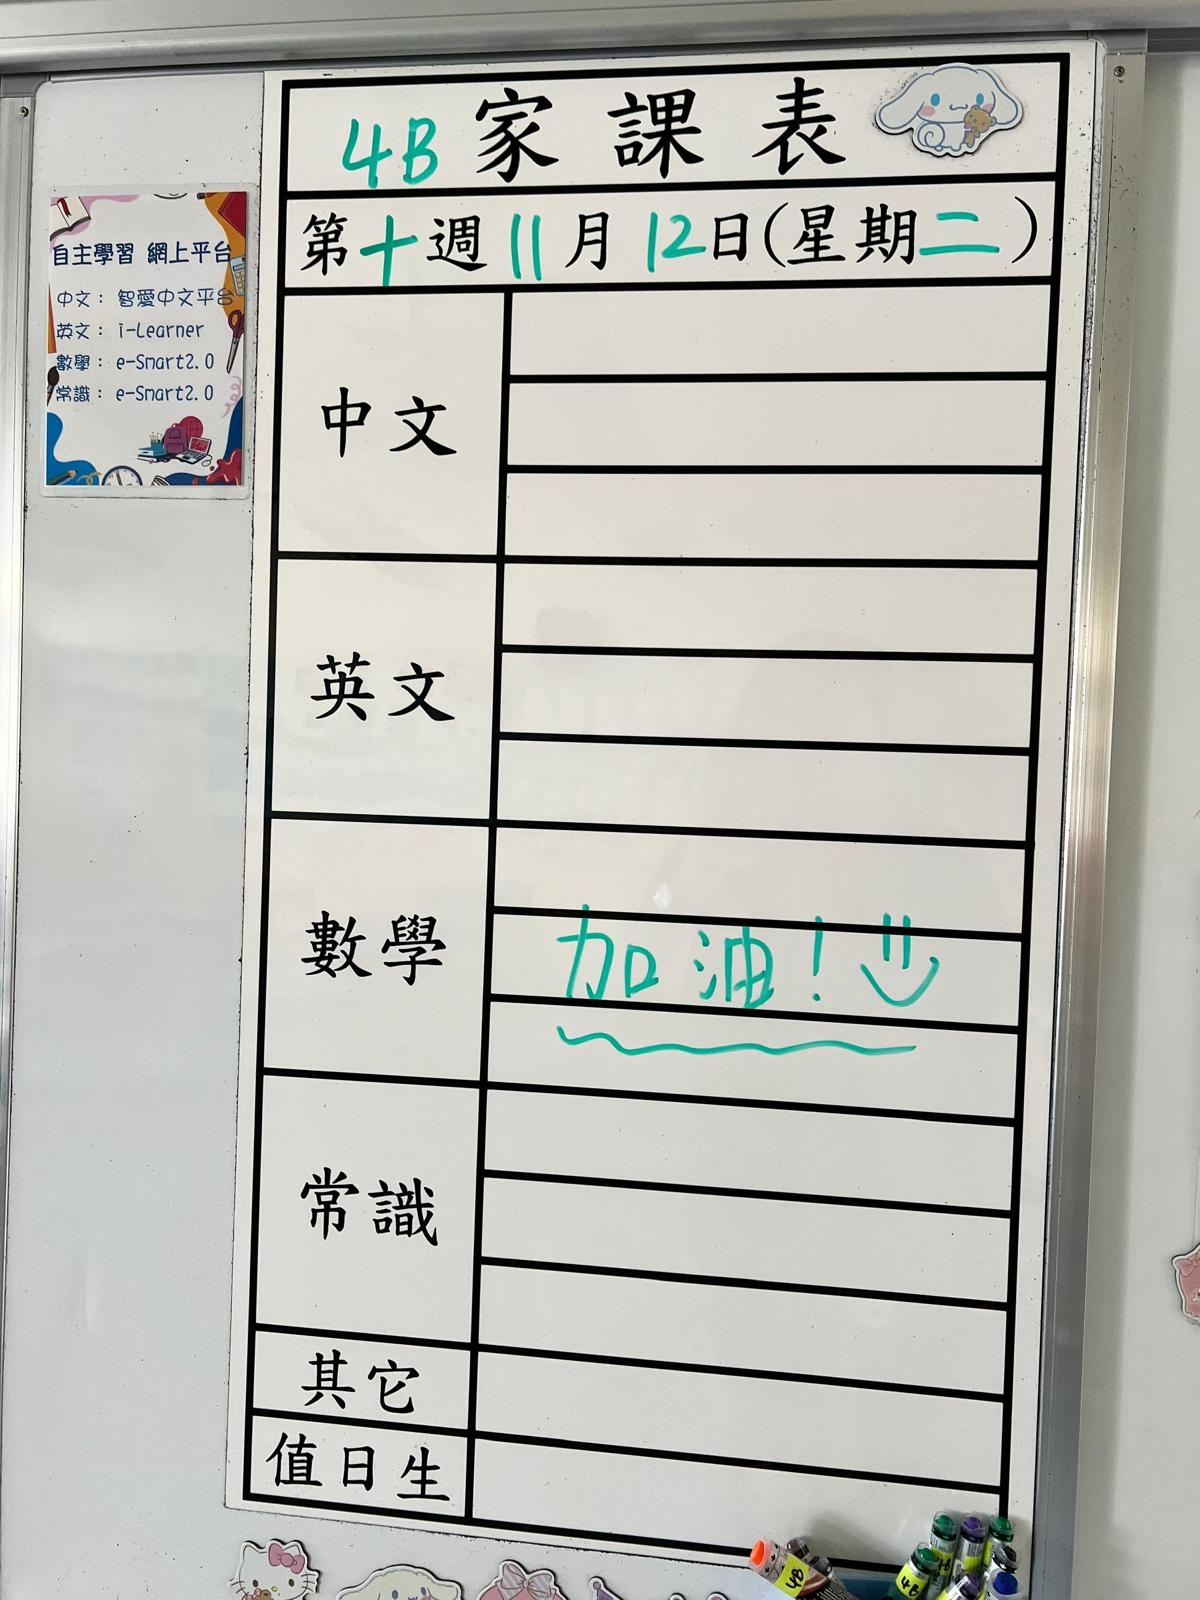 4B 家課表
第十週 11月 12日(星期二)
自主學習 網上平台
中文： 智愛中文平台
英文： i-Learner
數學： e-Smart2.0
常識： e-Smart2.0
中文
英文
數學
加油！
常識
其它
值日生
4B
4B